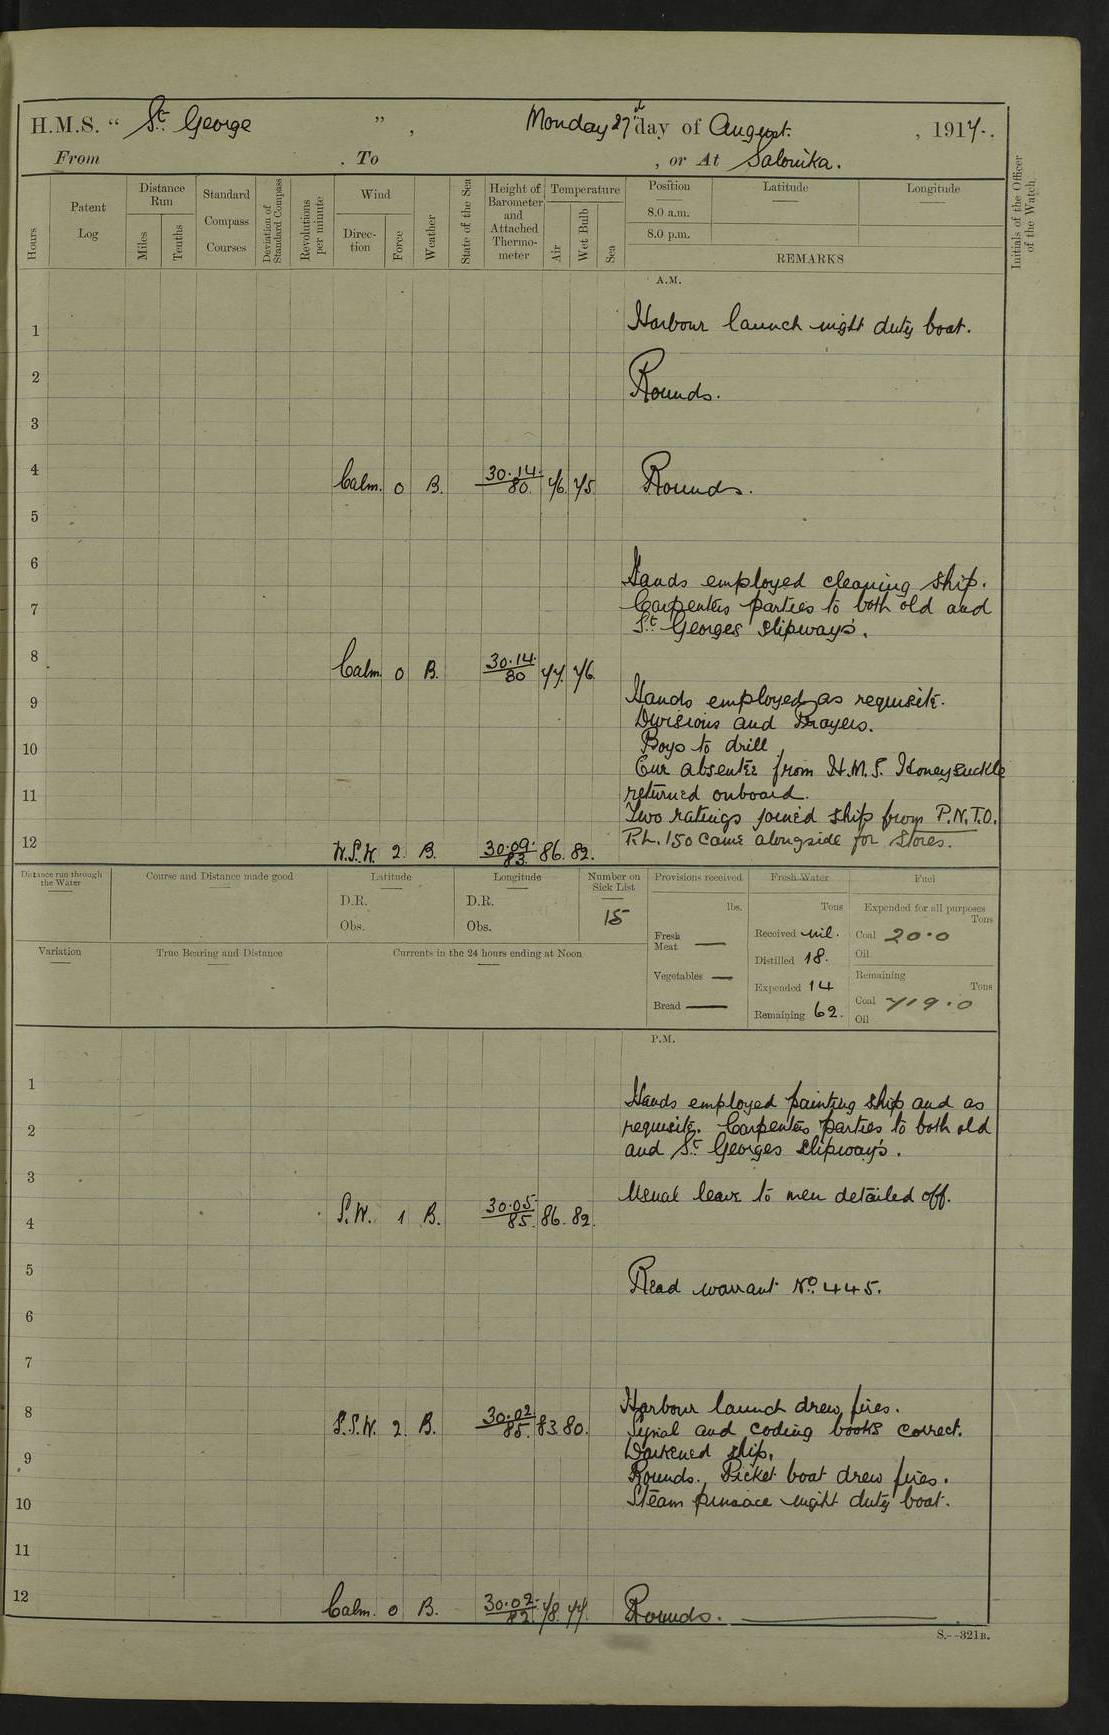 H.M.S. “ St George ” , Monday 27th day of August. , 1917.
From . To , or At Salonika.
Hours
Patent Log
Distance Run
Miles
Tenths
Standard Compass Courses
Deviation of Standard Compass
Revolutions per minute
Wind
Direction
Force
Weather
State of the Sea
Height of Barometer and Attached Thermometer
Temperature
Air
Wet Bulb
Sea
Position
8.0 a.m.
8.0 p.m.
Latitude
Longitude
REMARKS
Initials of the Officer of the Watch.
A.M.
1 Harbour launch night duty boat.
2 Rounds.
3
4 Calm. 0 B. 30.14. 80. 76 75 Rounds.
5
6 Hands employed cleaning ship.
7 Carpenters parties to both old and
St Georges slipways.
8 Calm 0 B. 30.14. 80 77. 76.
9 Hands employed as requisite.
Divisions and Prayers.
10 Boys to drill
One absentee from H.M.S. Honeysuckle
11 returned onboard.
Two ratings joined ship from P.N.T.O.
12 W.S.W. 2. B. 30.09. 83. 86. 82. P.L. 150 came alongside for stores.
Distance run through the Water
Course and Distance made good
Latitude
D.R.
Obs.
Longitude
D.R.
Obs.
Number on Sick List
15
Provisions received
lbs.
Fresh Meat —
Vegetables —
Bread —
Fresh Water
Tons
Received nil.
Distilled 18.
Expended 14
Remaining 62.
Fuel
Expended for all purposes
Tons
Coal 20.0
Oil
Remaining
Tons
Coal 719.0
Oil
Variation
True Bearing and Distance
Currents in the 24 hours ending at Noon
P.M.
1 Hands employed painting ship and as
2 requisite. Carpenters parties to both old
and St Georges slipway's.
3 Usual leave to men detailed off.
4 S.W. 1 B. 30.05. 85. 86. 82.
5 Read warrant No. 445.
6
7
8 S.S.W. 2. B. 30.02. 85. 83. 80. Harbour launch drew fires.
Signal and coding books correct.
9 Darkened ship.
Rounds. Picket boat drew fires.
10 Steam pinnace night duty boat.
11
12 Calm. 0 B. 30.02. 82. 78. 77. Rounds.
S.--321B.